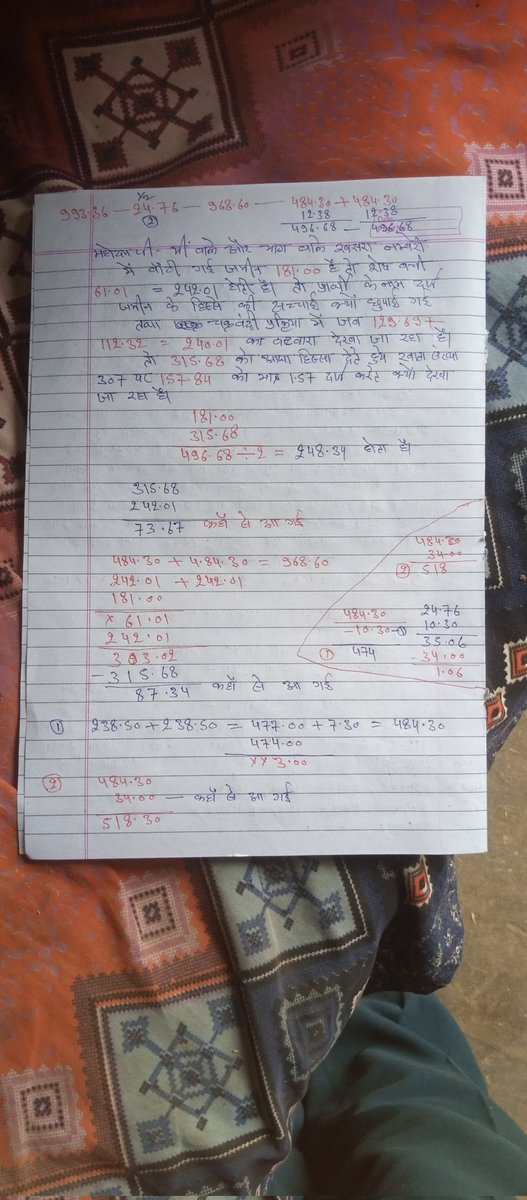 993.36 — 24.76 — 968.60 — 484.30 + 484.30
1/2
② 12.38 12.38
496.68 — 496.68
महोदय जी- मां वाले और भाग वाले खसरा नम्बरों
में बाँटी गई जमीन 181.00 है तो शेष बची
61.01 = 242.01 होती है। तो प्रार्थी के नाम दर्ज
जमीन के हिस्से की सच्चाई क्यों छुपाई गई
तथा चकबंदी प्रक्रिया में जब 129.69+
112.32 = 240.01 का बटवारा देखा जा रहा है।
तो 315.68 का आधा हिस्सा देते हुये खाता संख्या
307 पर 157.84 को मात्र 1.57 दर्ज करते क्यों देखा
जा रहा है।
181.00
315.68
496.68 ÷ 2 = 248.34 होता है।
315.68
242.01
73.67 कहाँ से आ गई
484.30 + 4.84.30 = 968.60
242.01 + 242.01
181.00
× 61.01
242.01
303.02
– 315.68
87.34 कहाँ से आ गई
484.30
34.00
② 518
484.30
– 10.30 – ①
① 474
24.76
10.30
35.06
– 34.00
1.06
① 238.50 + 238.50 = 477.00 + 7.30 = 484.30
474.00
×× 3.00
② 484.30
34.00 — कहाँ से आ गई
518.30